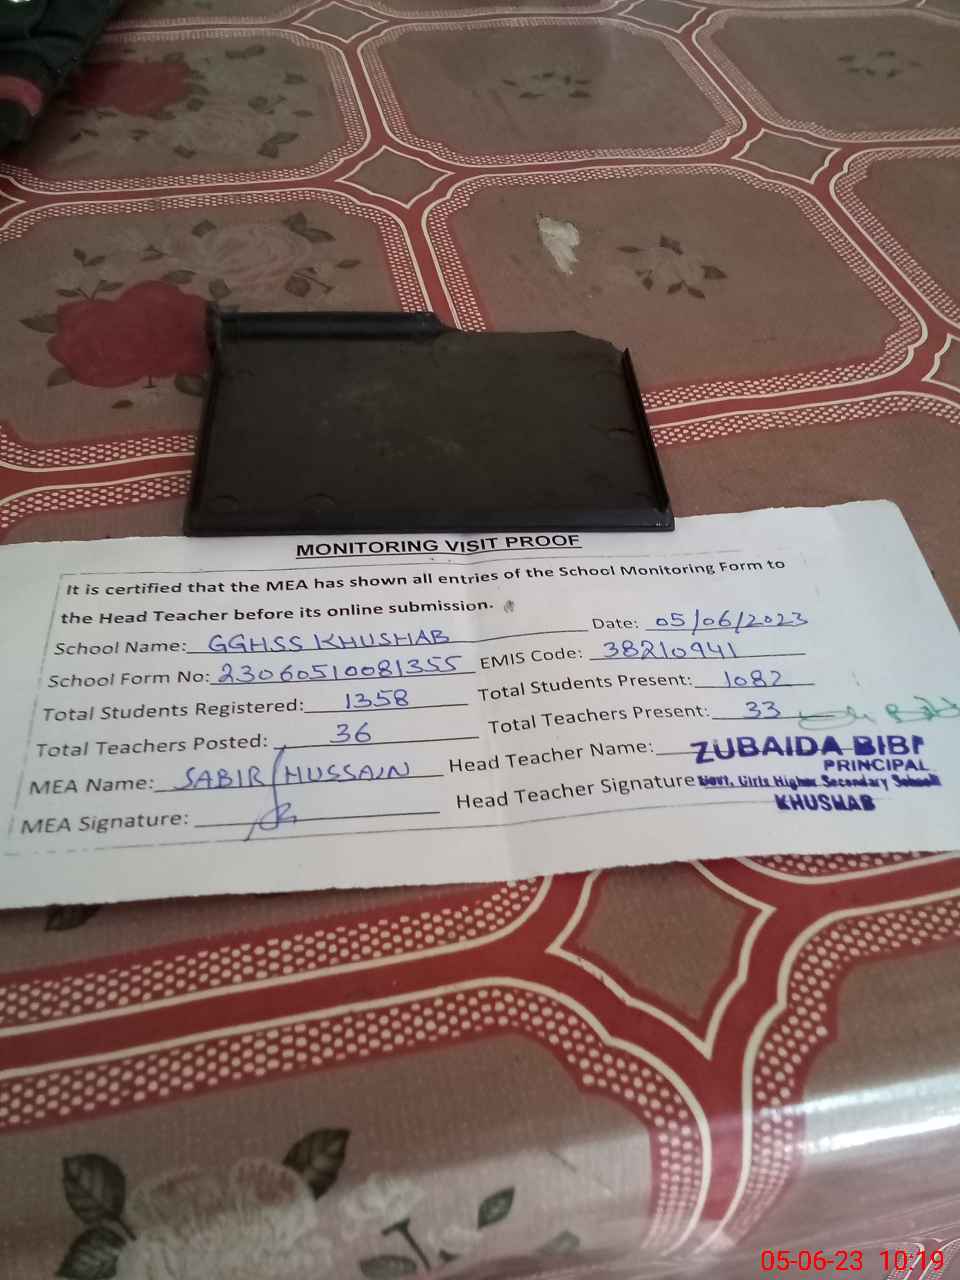 MONITORING VISIT PROOF
It is certified that the MEA has shown all entries of the School Monitoring Form to
the Head Teacher before its online submission.
School Name: GGHSS KHUSHAB Date: 05/06/2023
School Form No: 23060510081355 EMIS Code: 38210941
Total Students Registered: 1358 Total Students Present: 1082
Total Teachers Posted: 36 Total Teachers Present: 33
MEA Name: SABIR HUSSAIN Head Teacher Name: ZUBAIDA BIBI
PRINCIPAL
MEA Signature: Head Teacher Signature Govt. Girls Higher Secondary School
KHUSHAB
05-06-23 10:19